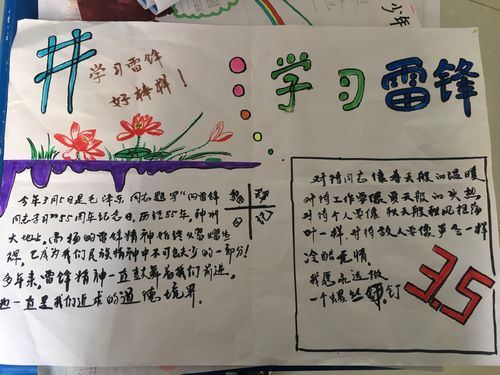 学习雷锋
好榜样！
学习雷锋
今年3月5日是毛泽东同志题写“向雷锋
同志学习”55周年纪念日，历经55年，神州
大地上，高扬的雷锋精神始终
碑，已成为我们民族精神中不可缺少的一部分！
多年来，雷锋精神一直鼓舞着我们前进。
也一直是我们追求的道德境界。
对待同志像春天般的温暖
对待工作要像夏天般的火热
对待个人要像秋天般秋风扫落
叶一样，对待敌人要像严冬一样
冷酷无情
我愿永远做
一个螺丝钉
3.5
少年